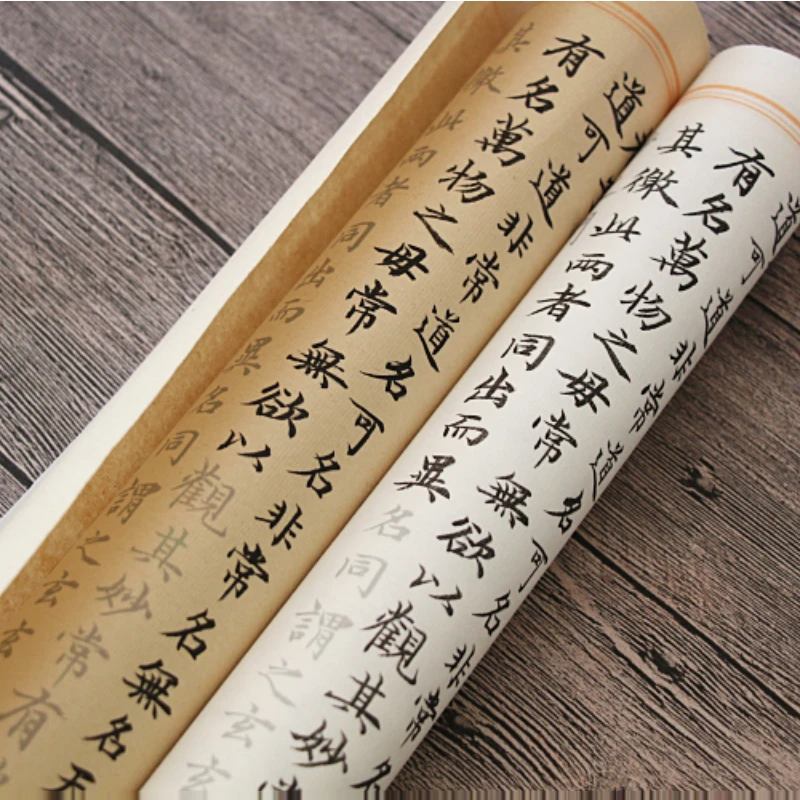 道可道非常道名可名非常名
有名萬物之母常無欲以觀其妙常
其徼此兩者同出而異名同謂之玄玄
道可道非常道名可名非常名無名天
有名萬物之母常無欲以觀其妙常有
其徼此兩者同出而異名同謂之玄玄